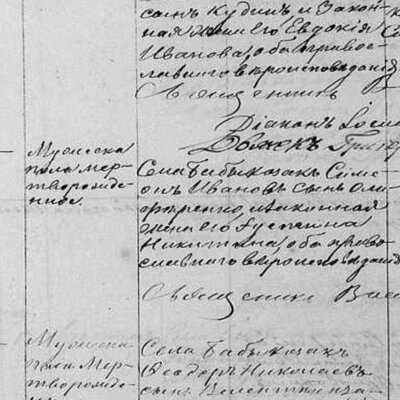 сынъ Кудинъ и закон-
ная жена его Евдокія
Иванова, оба право-
славнаго вѣроисповѣданія
Священникъ
Діаконъ
Мужеска
пола мер-
творожде-
нное.
Села Бабы козакъ Симе-
онъ Ивановъ сынъ
и законная
жена его Іустина
Никитина, оба право-
славнаго вѣроисповѣданія
Священникъ Вас
Мужеска
пола мер-
творожде-
Села Бабы козакъ
Ѳеодоръ Николаевъ
сынъ